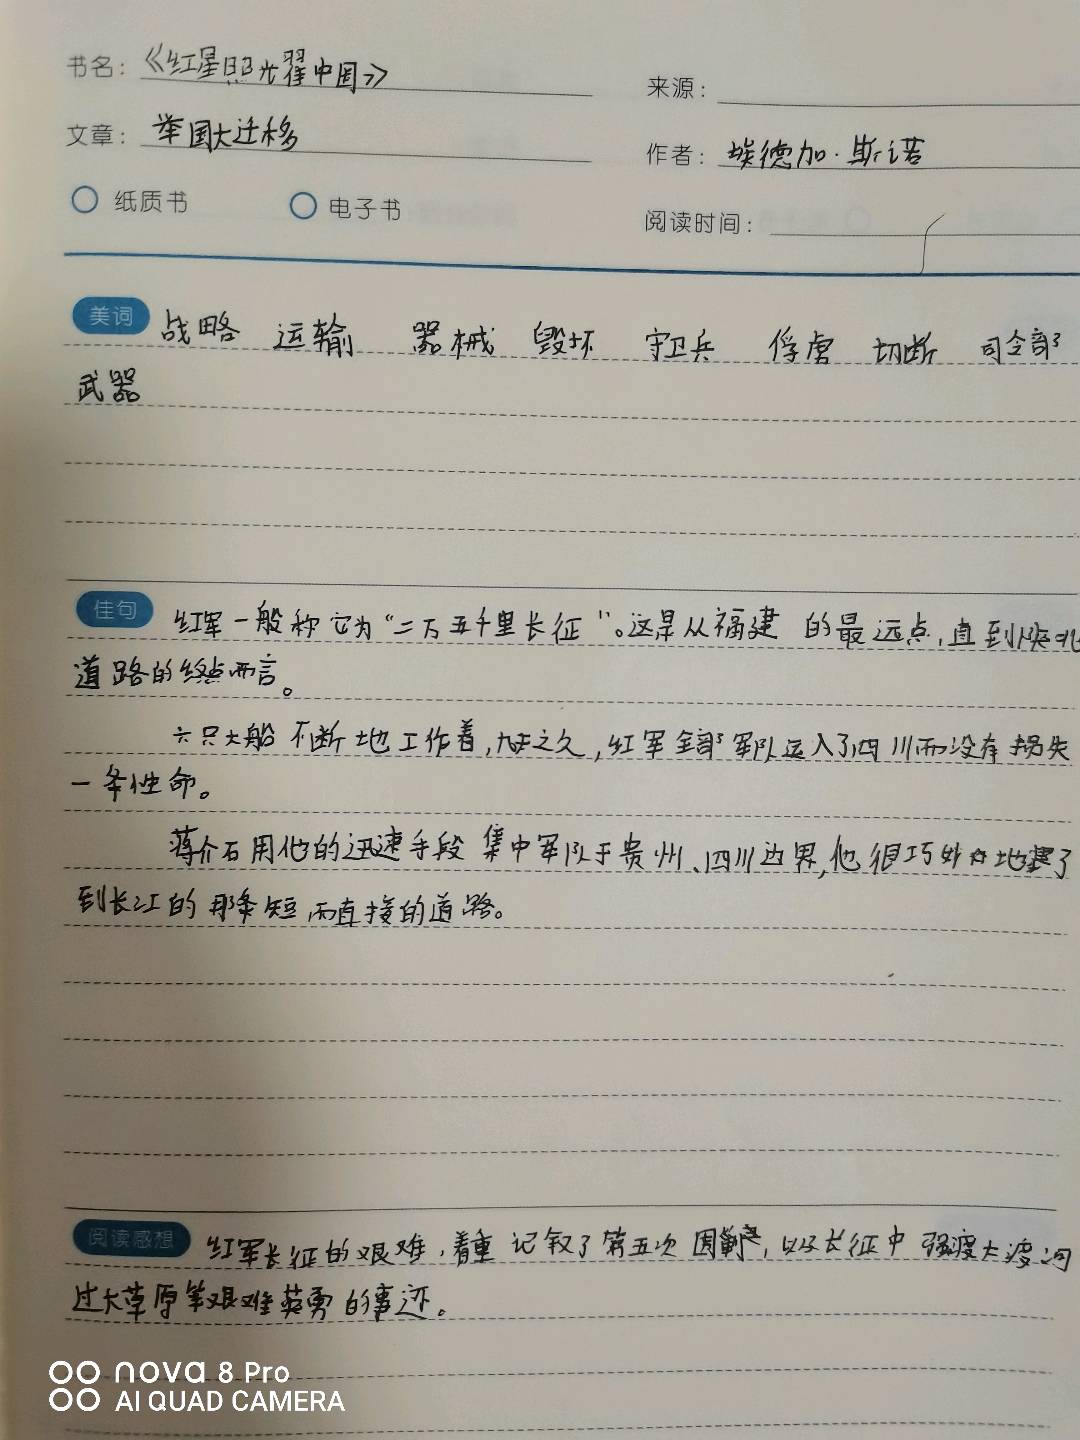 书名：《红星照耀中国》
来源：
文章：举国大迁移
作者：埃德加·斯诺
纸质书 电子书
阅读时间：
美词 战略 运输 器械 毁坏 守卫兵 俘虏 切断 司令部
武器
佳句 红军一般称它为“二万五千里长征”。这是从福建的最远点,直到陕北
道路的终点而言。
六只大船不断地工作着,九天之久,红军全部军队运入了四川而没有损失
一条性命。
蒋介石用他的迅速手段集中军队于贵州、四川边界,他很巧妙地塞了
到长江的那条短而直接的道路。
阅读感想 红军长征的艰难,着重记叙了第五次围剿,以及长征中强渡大渡河
过大草原等艰难英勇的事迹。
nova 8 Pro
AI QUAD CAMERA